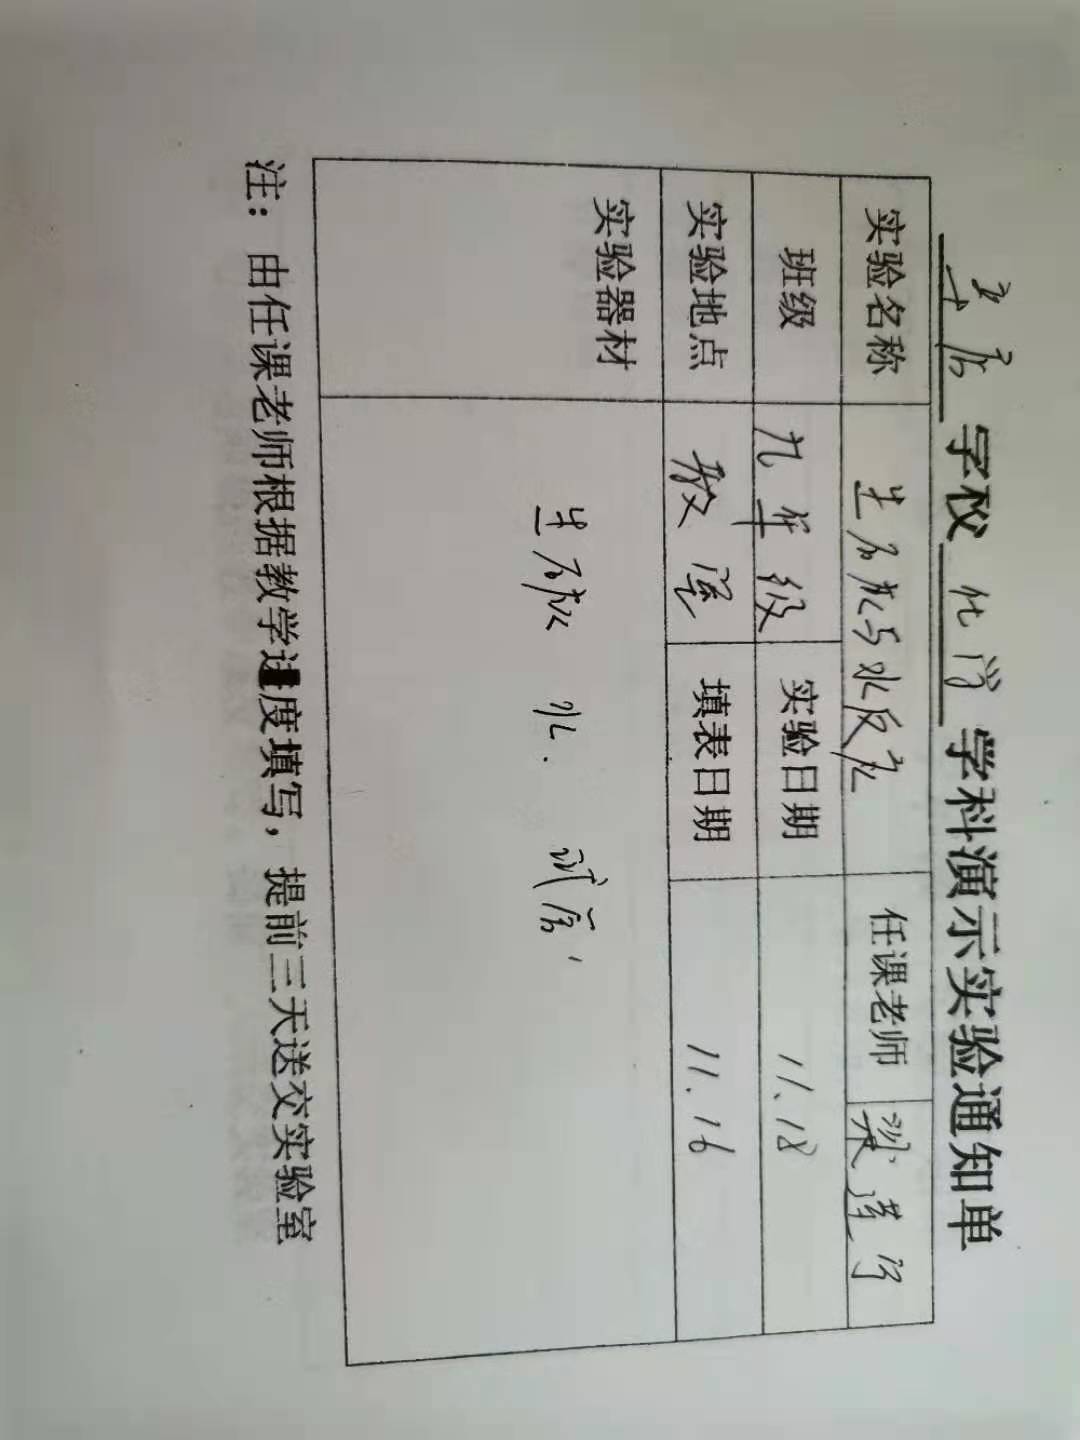 学校 化学 学科演示实验通知单
实验名称 生石灰与水反应 任课老师 梁莲
班级 九年级 实验日期 11.18
实验地点 教室 填表日期 11.16
实验器材 生石灰 水. 试管,
注：由任课老师根据教学进度填写，提前三天送交实验室